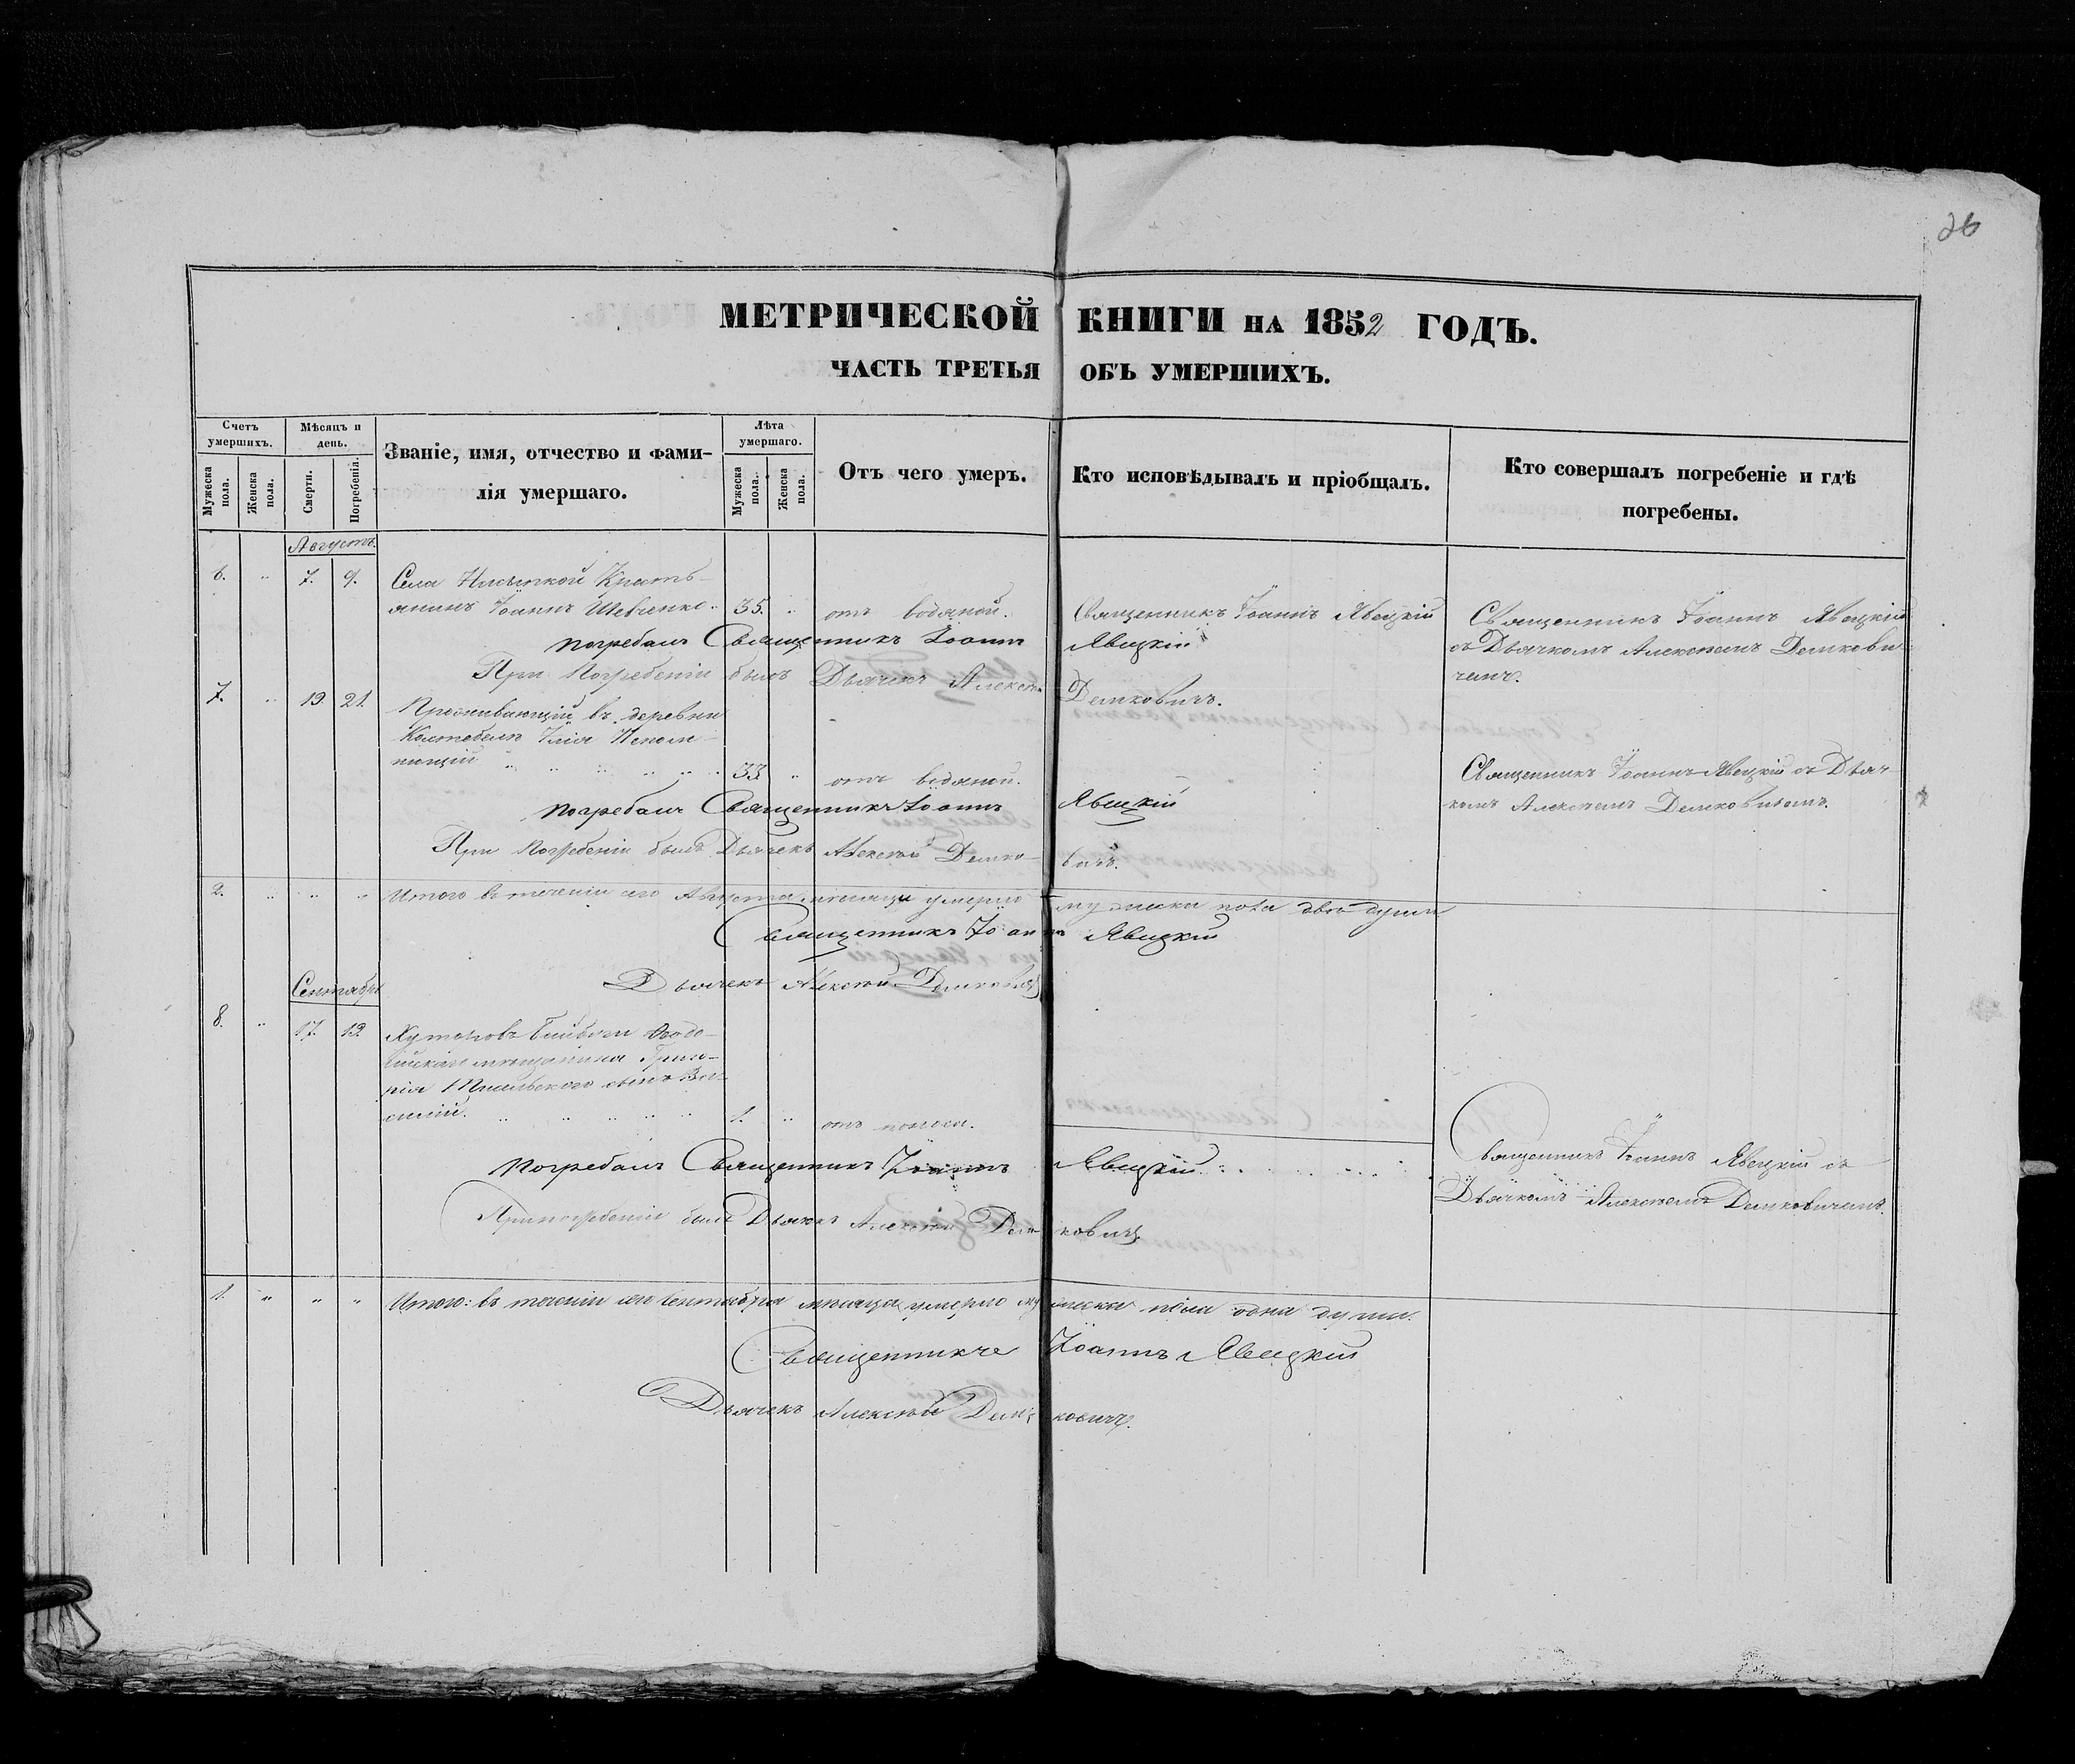 26
МЕТРИЧЕСКОЙ КНИГИ НА 1852 ГОДЪ.
ЧАСТЬ ТРЕТЬЯ ОБЪ УМЕРШИХЪ.
Счетъ умершихъ.
Мужеска пола.
Женска пола.
Мѣсяцъ и день.
Смерти.
Погребенія.
Званіе, имя, отчество и фами-
лія умершаго.
Лѣта умершаго.
Мужеска пола.
Женска пола.
Отъ чего умеръ.
Кто исповѣдывалъ и пріобщалъ.
Кто совершалъ погребеніе и гдѣ
погребены.
Августъ.
6. " 7. 9. Села Крестъ-
янинъ Іоаннъ Шевченко. 35. " отъ водяной.
Священникъ Іоаннъ Явецкій
Священникъ Іоаннъ Явецкій
съ Дьячкомъ Алексѣемъ Демкови-
чемъ.
Погребалъ Священникъ Іоаннъ Явецкій
При Погребеніи былъ Дьячекъ Алексѣй Демковичъ.
7. " 19. 21. Проживающій въ деревни
Илія Непом-
нющій " " " " " " 33 " отъ водяной.
Священникъ Іоаннъ Явецкій съ Дьяч-
комъ Алексѣемъ Демковичомъ.
Погребалъ Священникъ Іоаннъ Явецкій
При Погребеніи былъ Дьячекъ Алексѣй Демко- вичъ.
2. " " " Итого въ теченіи сего Августа мѣсяца умерло мужеска пола двѣ души
Священникъ Іоаннъ Явецкій
Дьячекъ Алексѣй Демковичъ
Сентябрь
8. " 17. 19. Хуторовъ
мѣщанина Григо-
рія сынъ Ва-
силій. " " " " " 1. " отъ поноса.
Священникъ Іоаннъ Явецкій съ
Дьячкомъ Алексѣемъ Демковичемъ.
Погребалъ Священникъ Іоаннъ Явецкій
При погребеніи былъ Дьячекъ Алексѣй Дем- ковичъ
1. " " " Итого: въ теченіи сего Сентября мѣсяца умерло мужеска пола одна душа.
Священникъ Іоаннъ Явецкій
Дьячекъ Алексѣй Демковичъ.